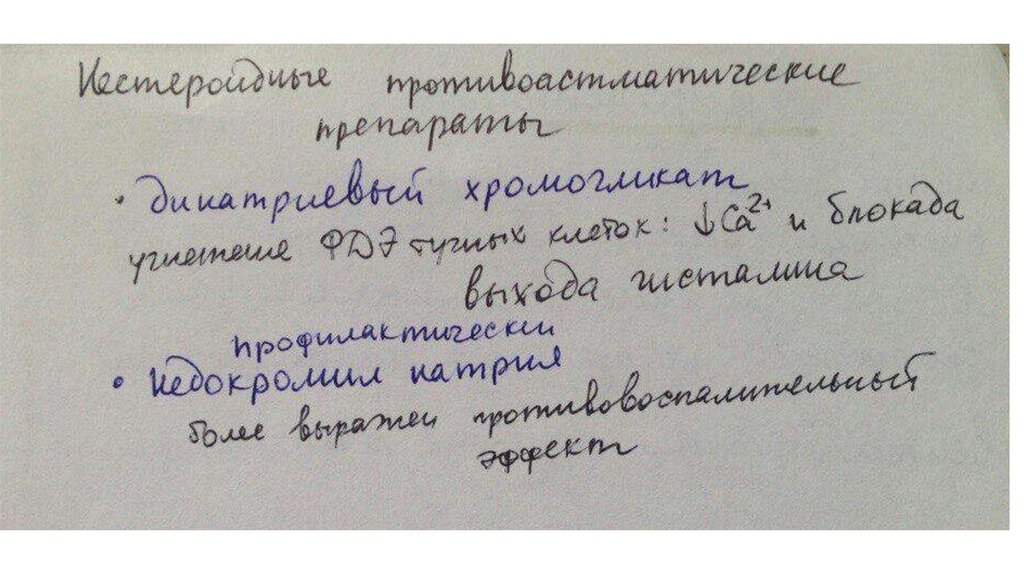 Нестероидные противоастматические
препараты
• динатриевый хромогликат
угнетение ФДЭ тучных клеток: ↓Ca²⁺ и блокада
выхода гисталина
профилактически
• недокромил натрия
более выражен противовоспалительный
эффект